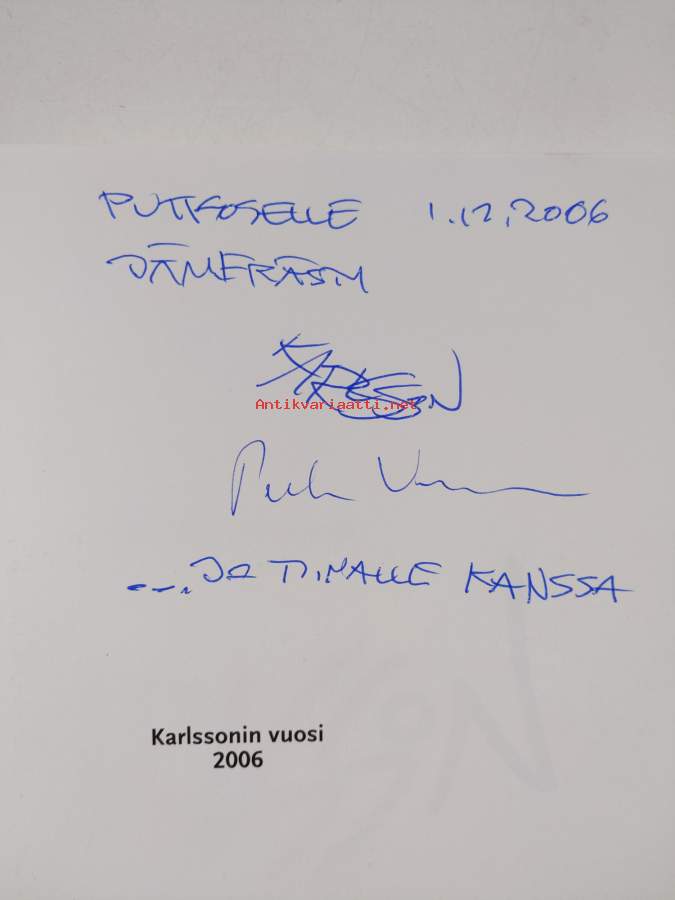 PUTKOSELLE 1.12.2006
JÄMERÄSTI
KARLSSON
Antikvariaatti.net
... JA TIMALLE KANSSA
Karlssonin vuosi
2006